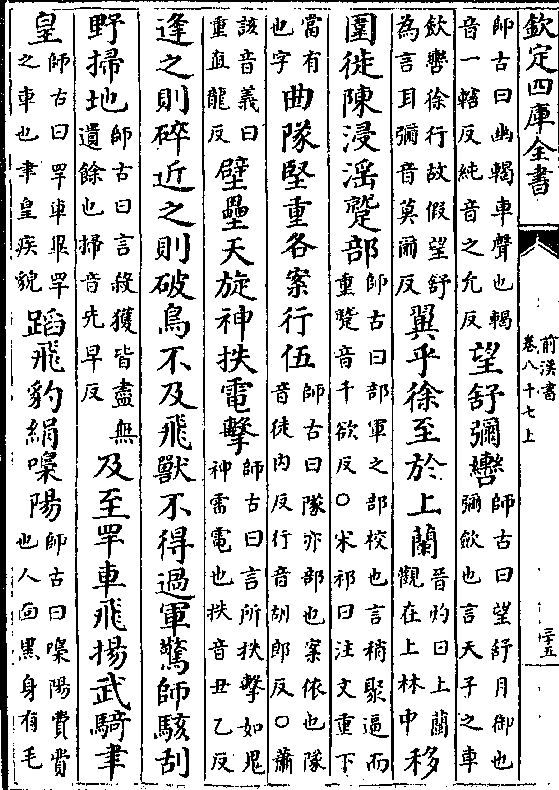 欽定四庫全書 前漢書 卷八十七上 二十五
師古曰幽輵車聲也輵音一轄反純音之允反望舒彌轡師古曰望舒月御也彌斂也言天子之車
斂轡徐行故假望舒為言耳彌音莫爾反翼乎徐至於上蘭晉灼曰上蘭觀在上林中移
圍徙陳浸淫蹵部師古曰部軍之部校也言稍聚逼而重蹵音千欲反○宋祁曰注文重下
當有也字曲隊堅重各案行伍師古曰隊亦部也案依也隊音徒内反行音胡郎反○蕭
該音義曰重直龍反壁壘天旋神抶電擊師古曰言所抶擊如鬼神雷電也抶音丑乙反
逢之則碎近之則破鳥不及飛獸不得過軍驚師駭刮
野掃地師古曰言殺獲皆盡無遺餘也掃音先早反及至罕車飛揚武騎聿
皇師古曰罕車畢罕之車也聿皇疾貌蹈飛豹絹噪陽師古曰噪陽費費也人面黑身有毛